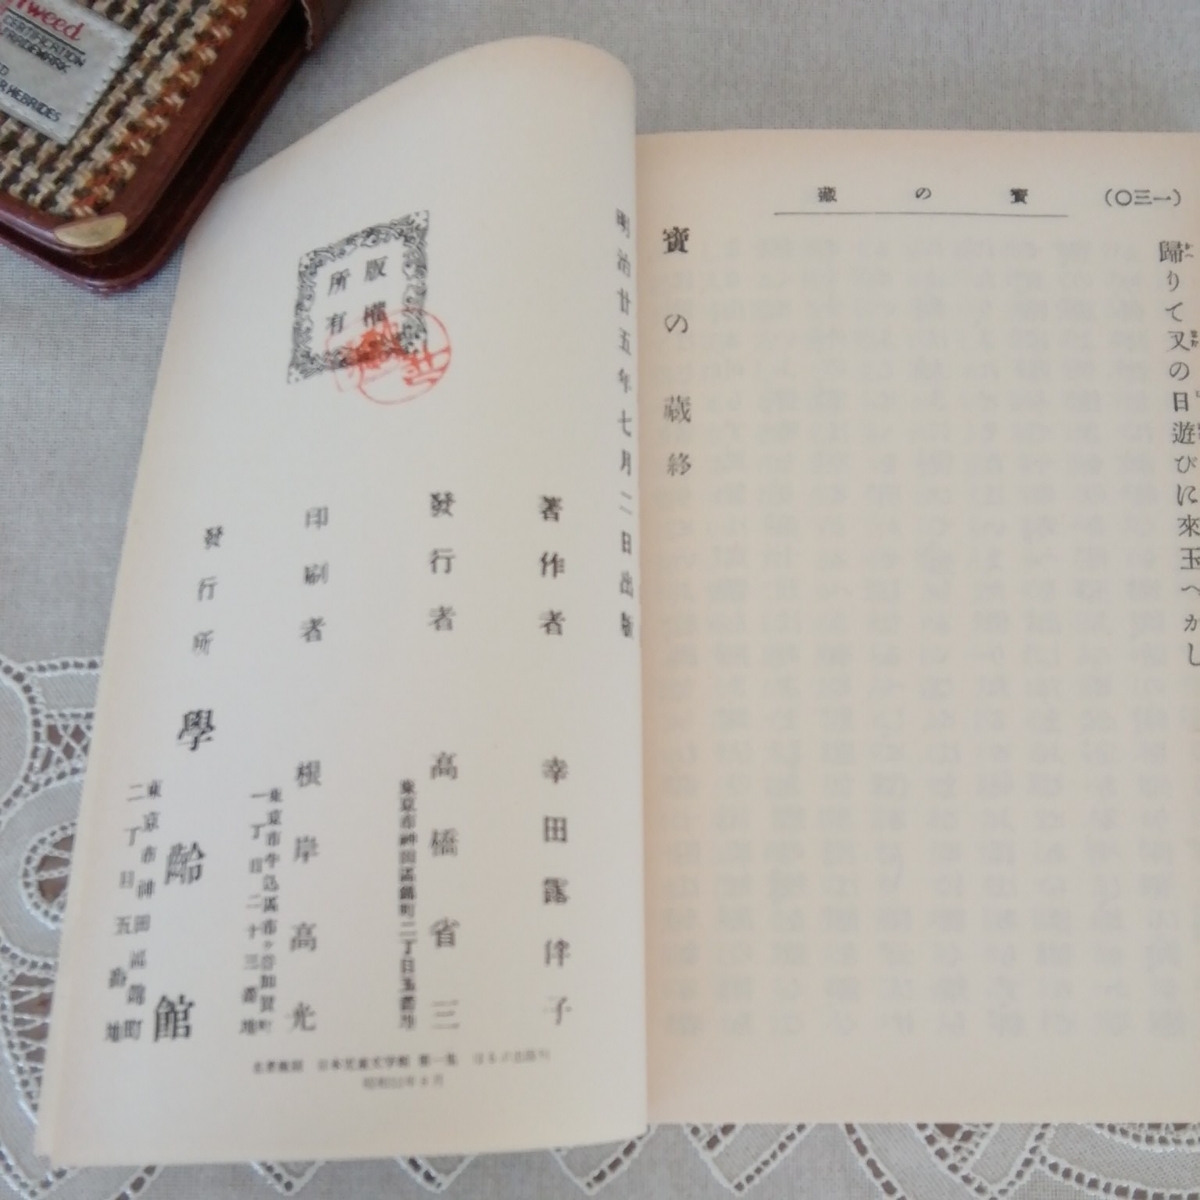 (一三〇)
寶の藏
歸りて又の日遊びに來玉へかし
寶の蔵終
明治廿五年七月二日出版
著作者 幸田露伴子
發行者 高橋省三
東京市神田區錦町二丁目五番地
印刷者 根岸高光
東京市牛込區市ヶ谷加賀町
一丁目二十三番地
發行所 學齡館
東京市神田區錦町
二丁目五番地
版權
所有
名著復刻 日本児童文学館 第一集 ほるぷ出版刊
Tweed
CERTIFICATION
TRADEMARK
HEBRIDES